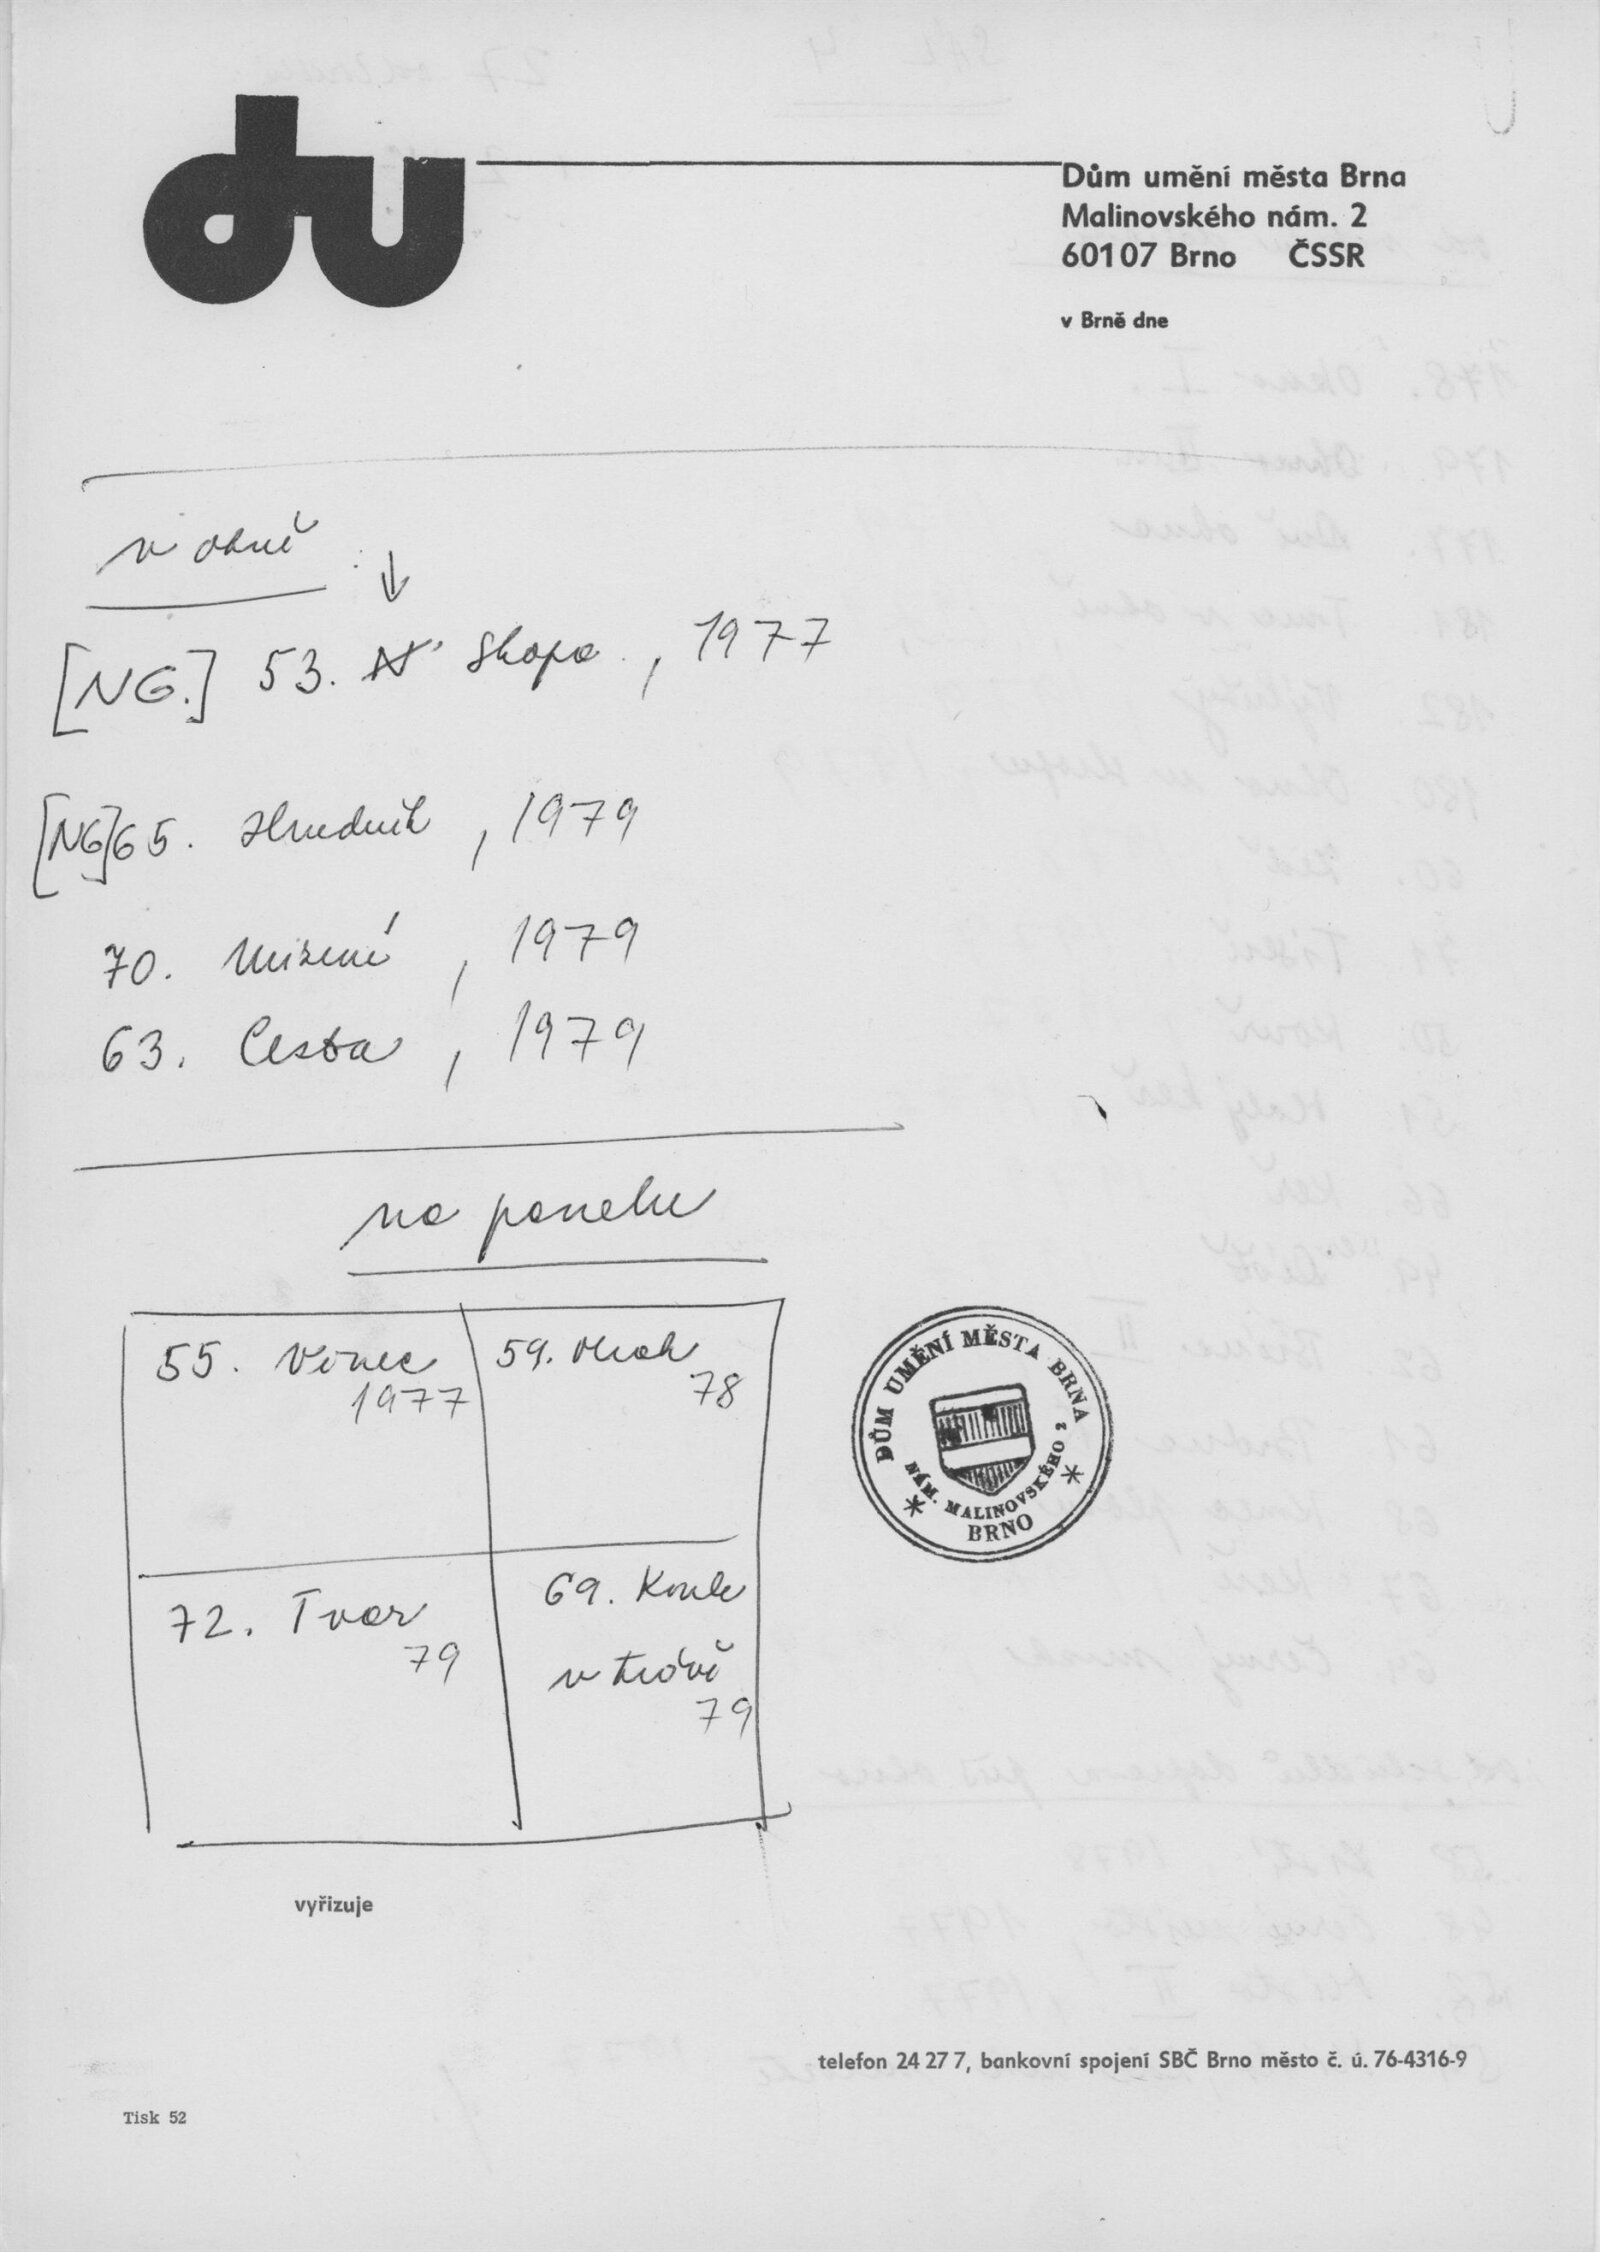 du
Dům umění města Brna
Malinovského nám. 2
60107 Brno ČSSR
v Brně dne
v okně
[NG.] 53. Skopo, 1977
[NG] 65. Hrudník, 1979
70. Mizení, 1979
63. Cesta, 1979
na panelu
55. Věnec
1977
59. Oblak
78
72. Tvar
79
69. Koule
v trávě
79
DŮM UMĚNÍ MĚSTA BRNA
NÁM. MALINOVSKÉHO 2
BRNO
vyřizuje
telefon 24 27 7, bankovní spojení SBČ Brno město č. ú. 76-4316-9
Tisk 52